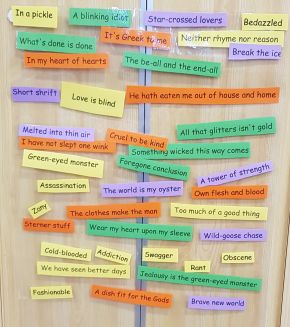 In a pickle
A blinking idiot
Star-crossed lovers
Bedazzled
What's done is done
It's Greek to me
Neither rhyme nor reason
Break the ice
In my heart of hearts
The be-all and the end-all
Short shrift
Love is blind
He hath eaten me out of house and home
Melted into thin air
Cruel to be kind
All that glitters isn't gold
I have not slept one wink
Something wicked this way comes
Green-eyed monster
Foregone conclusion
A tower of strength
Assassination
The world is my oyster
Own flesh and blood
Zany
The clothes make the man
Too much of a good thing
Sterner stuff
Wear my heart upon my sleeve
Wild-goose chase
Cold-blooded
Addiction
Swagger
Obscene
We have seen better days
Rant
Jealousy is the green-eyed monster
Fashionable
A dish fit for the Gods
Brave new world